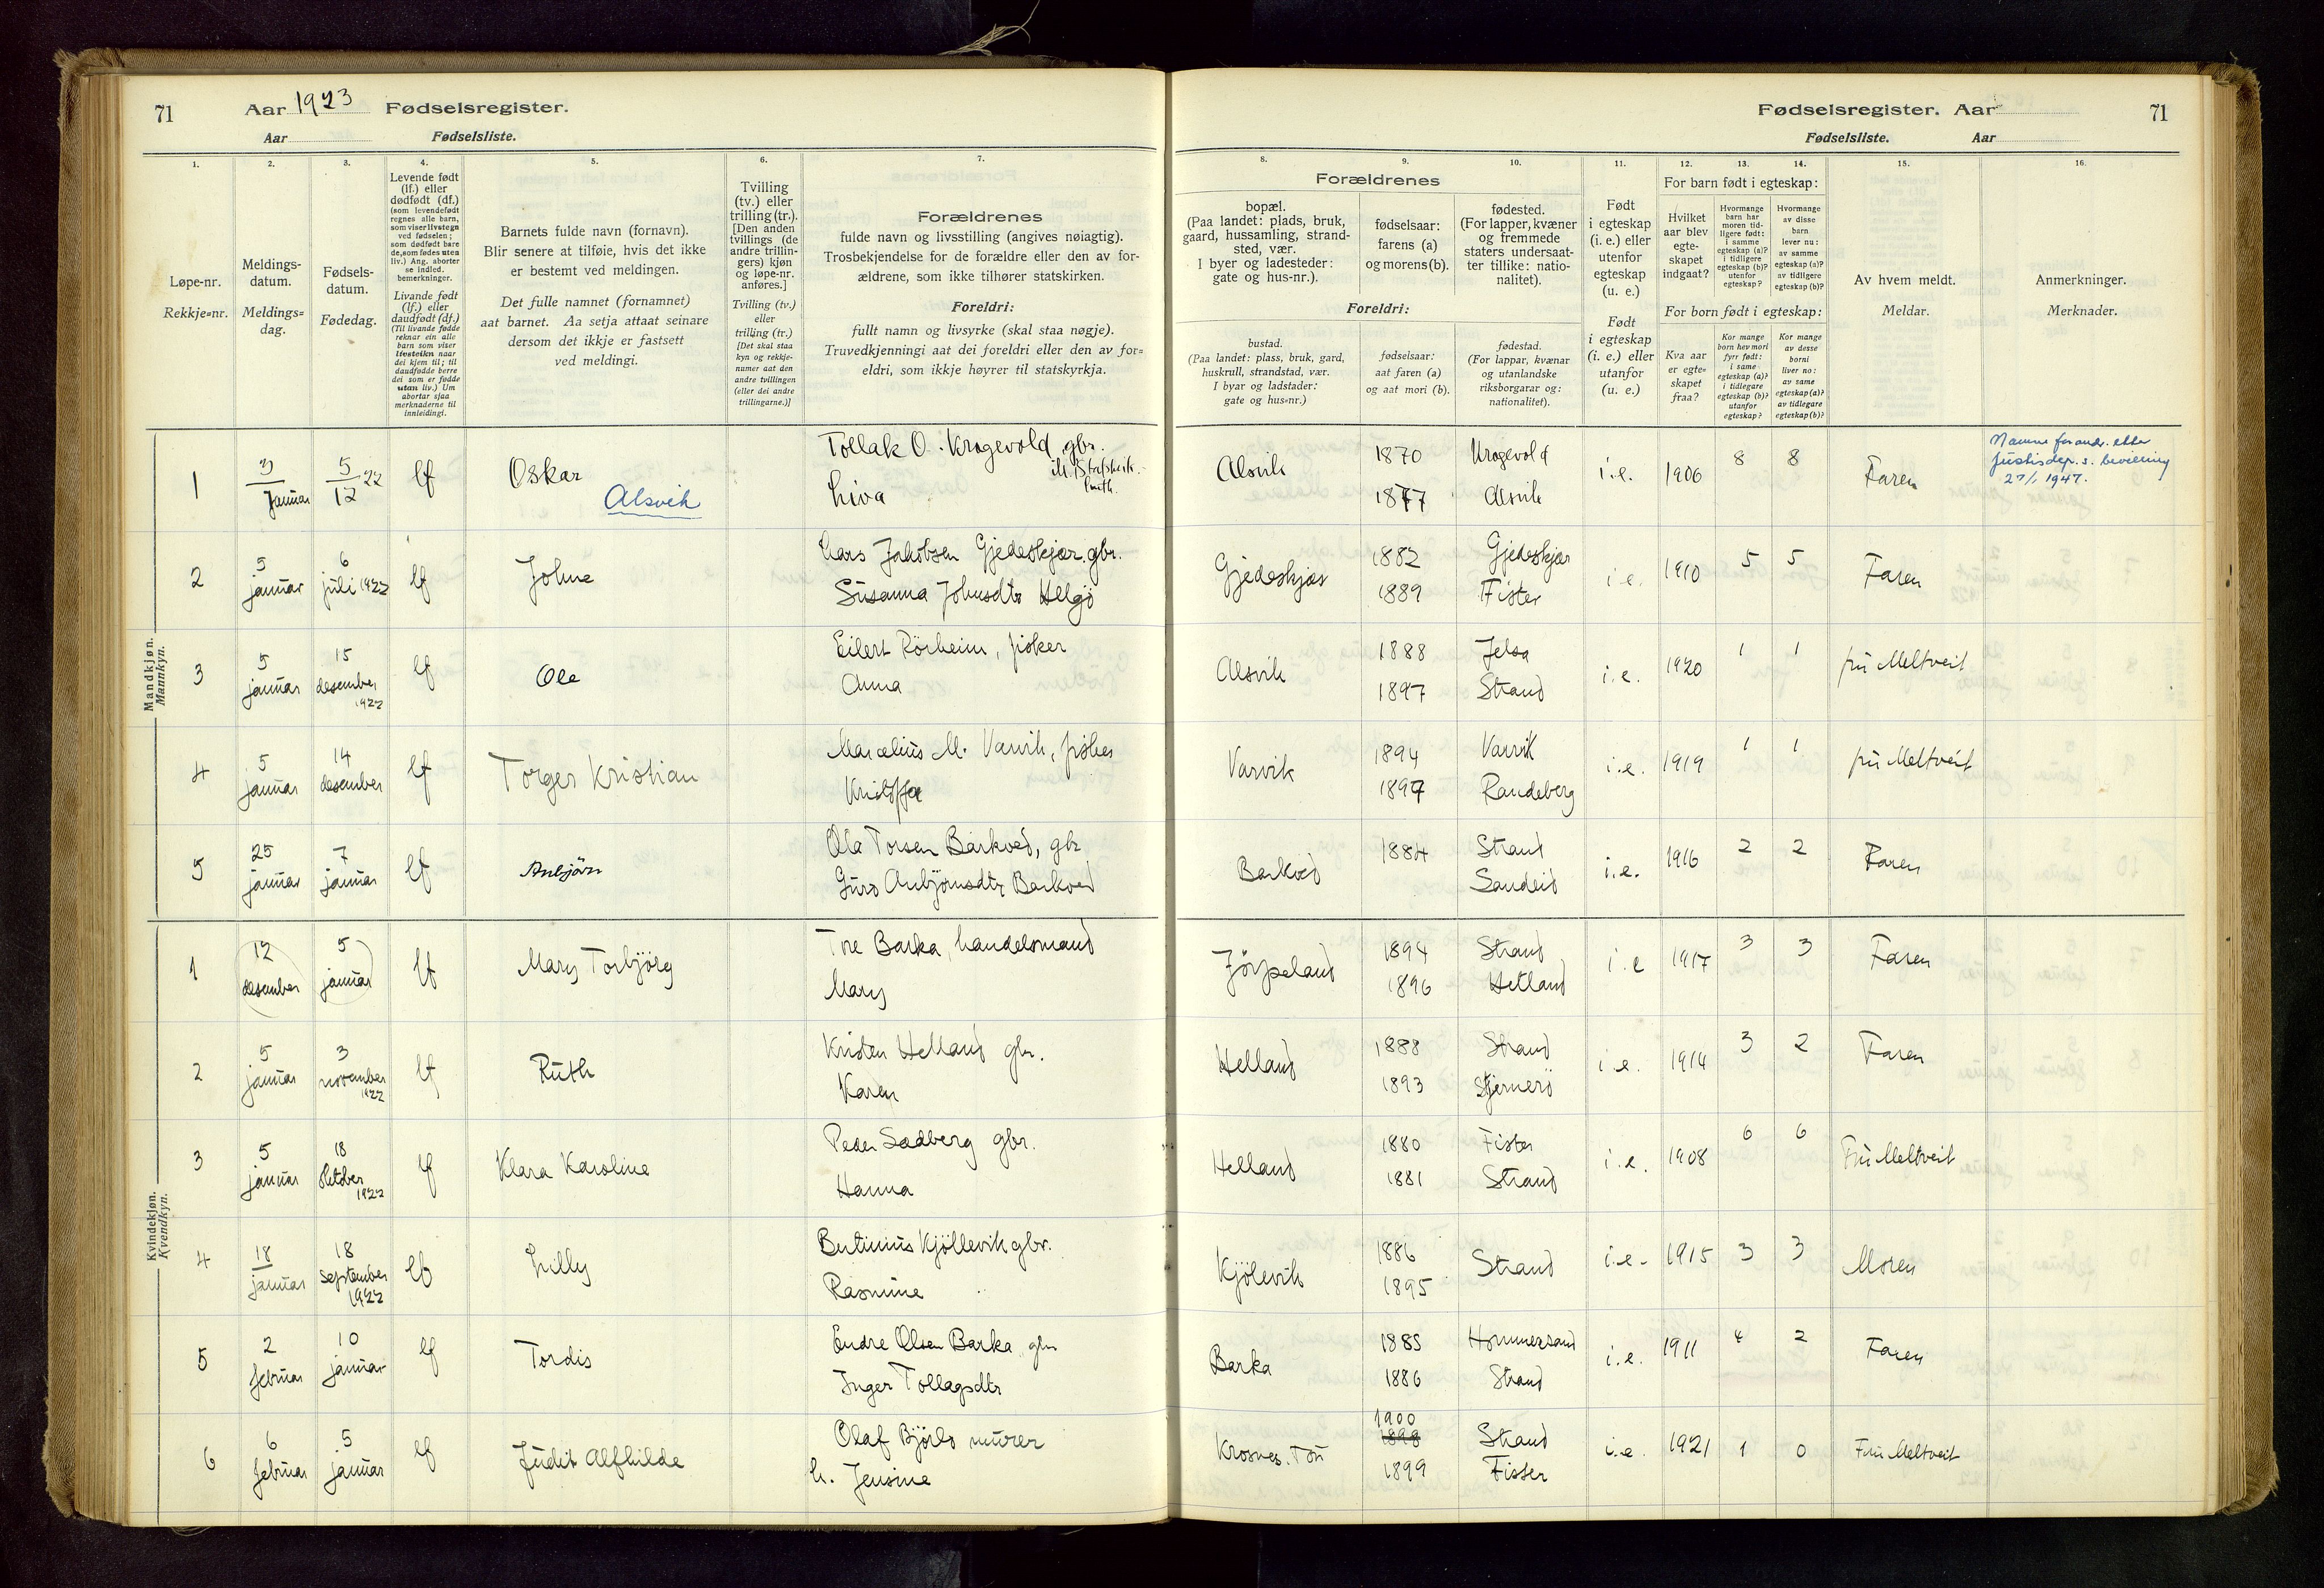 71 Aar 1923 Fødselsregister.
Aar Fødselsliste.
Fødselsregister. Aar 71
Fødselsliste. Aar
1.
Løpe-nr.
Rekkje=nr.
2.
Meldings-
datum.
Meldings=
dag.
3.
Fødsels-
datum.
Fødedag.
4.
Levende født
(lf.) eller
dødfødt (df.)
(som levendefødt
regnes alle barn,
som viser livstegn
ved fødselen;
som dødfødt bare
de, som fødes uten
liv.) Ang. aborter
se indled.
bemerkninger.
Livande født
(lf.) eller
daudfødt (df.)
(Til livande fødde
reknar ein alle
barn som viser
livsteikn naar
dei kjem til; til
daudfødde berre
dei som er fødde
utan liv.) Um
abortar sjaa
merknaderne til
innleidingi.
5.
Barnets fulde navn (fornavn).
Blir senere at tilføie, hvis det ikke
er bestemt ved meldingen.
Det fulle namnet (fornamnet)
aat barnet. Aa setja attaat seinare
dersom det ikkje er fastsett
ved meldingi.
6.
Tvilling
(tv.) eller
trilling (tr.).
[Den anden
tvillings (de
andre trillin-
gers) kjøn
og løpe-nr.
anføres.]
Tvilling (tv.)
eller
trilling (tr.)
[Det skal staa
kyn og rekkje-
numer aat den
andre tvillingen
(eller dei andre
trillingarne.)]
7.
Forældrenes
fulde navn og livsstilling (angives nøiagtig).
Trosbekjendelse for de forældre eller den av for-
ældrene, som ikke tilhører statskirken.
Foreldri:
fullt namn og livsyrke (skal staa nøgje).
Truvedkjenningi aat dei foreldri eller den av for=
eldri, som ikkje høyrer til statskyrkja.
8.
Forældrenes
bopæl.
(Paa landet: plads, bruk,
gaard, hussamling, strand-
sted, vær.
I byer og ladesteder:
gate og hus-nr.).
Foreldri:
bustad.
(Paa landet: plass, bruk, gard,
huskrull, strandstad, vær.
I byar og ladstader:
gate og hus=nr.)
9.
fødselsaar:
farens (a)
og morens (b).
fødselsaar:
aat faren (a)
og aat mori (b).
10.
fødested.
(For lapper, kvæner
og fremmede
staters undersaat-
ter tillike: natio-
nalitet).
fødestad.
(For lappar, kvænar
og utanlandske
riksborgarar og:
nationalitet).
11.
Født
i egteskap
(i. e.) eller
utenfor
egteskap
(u. e.)
Født
i egteskap
(i. e.) eller
utanfor
(u. e.)
12. 13. 14.
For barn født i egteskap:
Hvilket
aar blev
egte-
skapet
indgaat?
Hvormange
barn har
moren tid-
ligere født:
i samme
egteskap (a)?
i tidligere
egteskap (b)?
utenfor
egteskap?
Hvormange
av disse
barn
lever nu:
av samme
egteskap (a)?
av tidligere
egteskap (b)?
For born født i egteskap:
Kva aar
er egte=
skapet
fraa?
Kor mange
born hev mori
fyrr født:
i same
egteskap (a)?
i tidlegare
egteskap (b)?
utanfor
egteskap?
Kor mange
av desse
borni
liver no:
av same
egteskap (a)?
av tidlegare
egteskap (b)?
15.
Av hvem meldt.
Meldar.
16.
Anmerkninger.
Merknader.
Mandkjøn.
Mannkyn.
1 3/Januar 5/12 22 lf Oskar Tollak O. Krogevold, gbr.
Alsvik Liva
Alsvik 1870 Krogevold i.e. 1906 8 8 Faren
1877 Alsvik
Navne forandr. etter
Justisdep.s. bevilling
27/1 1947.
2 5 januar 6 juli 1922 lf Johne Lars Jakobsen Gjedeskjær. gbr.
Susanna Johnsdtr Helgø
Gjedeskjær 1882 Gjedeskjær i.e. 1910 5 5 Faren
1889 Fister
3 5 januar 15 desember 1922 lf Ole Eilert Rörheim, fisker
Anna
Alsvik 1888 Jelsa i.e. 1920 1 1 fru Meltveit
1897 Strand
4 5 januar 14 desember lf Torger Kristian Marcelius M. Varvik, fisker
Varvik 1894 Varvik i.e. 1919 1 1 fru Meltveit
1897 Randeberg
5 25 januar 7 januar lf Anbjörn Ola Torsen Barkved, gbr
Guro Anbjörnsdtr Barkved
Barkved 1884 Strand i.e. 1916 2 2 Faren
Sandeid
Kvindekjøn.
Kvendkyn.
1 12 desember 5 januar lf Mary Torbjörg Tore Barka, handelsmand
Mary
Jörpeland 1894 Strand i.e 1917 3 3 Faren
1896 Hetland
2 5 januar 3 november 1922 lf Ruth Kristen Helland gbr.
Karen
Helland 1888 Strand i.e. 1914 3 2 Faren
1893 Stjernerö
3 5 januar 18 Oktober 1922 lf Klara Karoline Peder Sædberg gbr.
Hanna
Helland 1880 Fister i.e. 1908 6 6 Fru Meltveit
1881 Strand
4 18 januar 18 September 1922 lf Lilly Bertinius Kjöllevik gbr.
Rasmine
Kjölevik 1886 Strand i.e. 1915 3 3 Moren
1895
5 2 februar 10 januar lf Tordis Endre Olsen Barka gbr
Inger Tollagsdtr
Barka 1885 Hommersand i.e. 1911 4 2 Faren
1886 Strand
6 6 februar 5 januar lf Judit Alfhilde Olaf Björlo murer
h. Jensine
Krosnes. Tau 1900 1898 Strand i.e. 1921 1 0 Fru Meltveit
1899 Fister